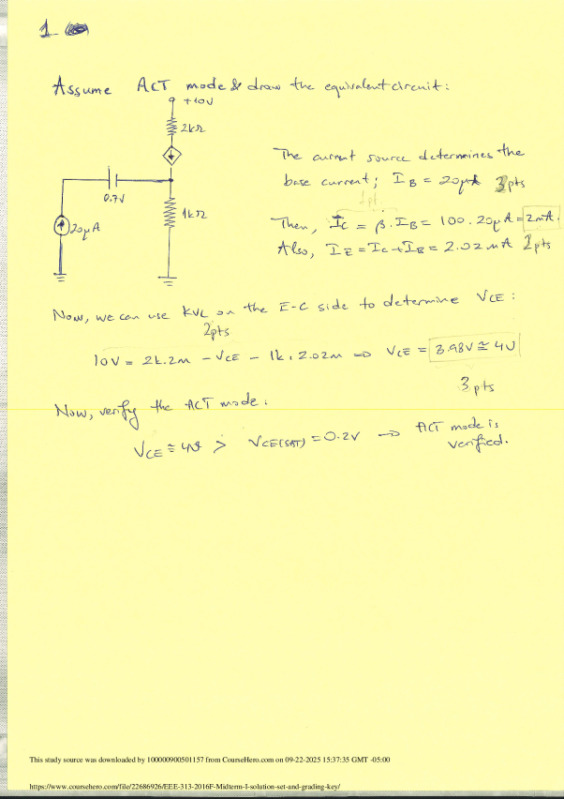 1.
Assume ACT mode & draw the equivalent circuit:
+10V
2kΩ
The current source determines the
base current; IB = 20μA 3pts
0.7V
1kΩ
20μA
Then, IC = β.IB = 100.20μA = 2mA.
Also, IE = IC+IB = 2.02mA 2pts
Now, we can use KVL on the E-C side to determine VCE:
2pts
10V = 2k.2m - VCE - 1k.2.02m ⇒ VCE = 3.98V ≅ 4V
3pts
Now, verify the ACT mode:
VCE ≅ 4V > VCE(SAT) = 0.2V ⇒ ACT mode is
verified.
This study source was downloaded by 100000900501157 from CourseHero.com on 09-22-2025 15:37:35 GMT -05:00
https://www.coursehero.com/file/22686926/EEE-313-2016F-Midterm-I-solution-set-and-grading-key/